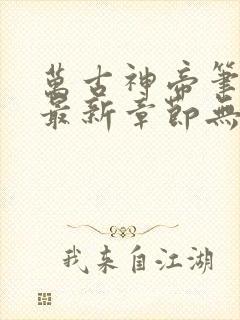 萬古神帝筆
最新章節無
我来自江湖